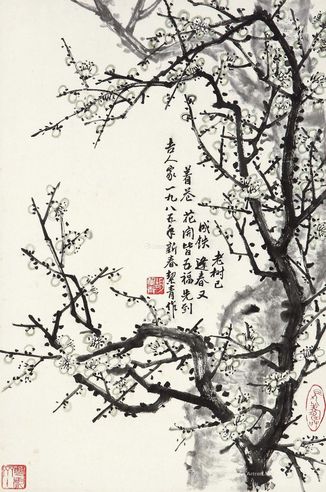 老树已
成铁逢春又
着花花开皆五福先到
善人家一九八五年新春絜青作